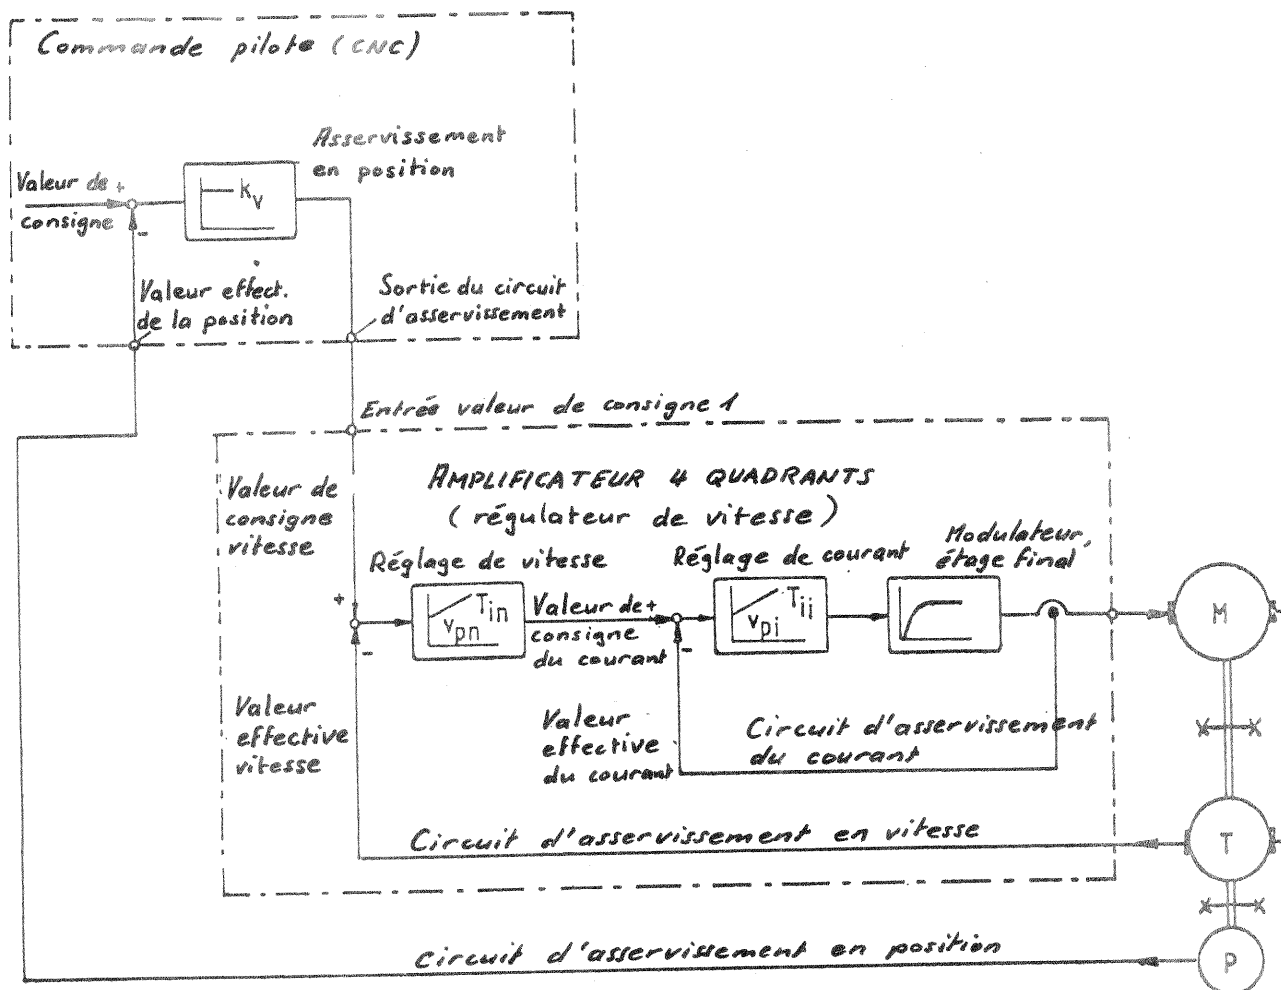 Commande pilote (CNC)
Asservissement
en position
Valeur de +
consigne
-
k_v
Valeur effect.
de la position
Sortie du circuit
d'asservissement
Entrée valeur de consigne 1
AMPLIFICATEUR 4 QUADRANTS
(régulateur de vitesse)
Valeur de
consigne
vitesse
Réglage de vitesse
Réglage de courant
Modulateur,
étage final
+
-
T_in
v_pn
Valeur de +
consigne
du courant
-
T_ii
v_pi
M
Valeur
effective
vitesse
Valeur
effective
du courant
Circuit d'asservissement
du courant
Circuit d'asservissement en vitesse
T
circuit d'asservissement en position
P